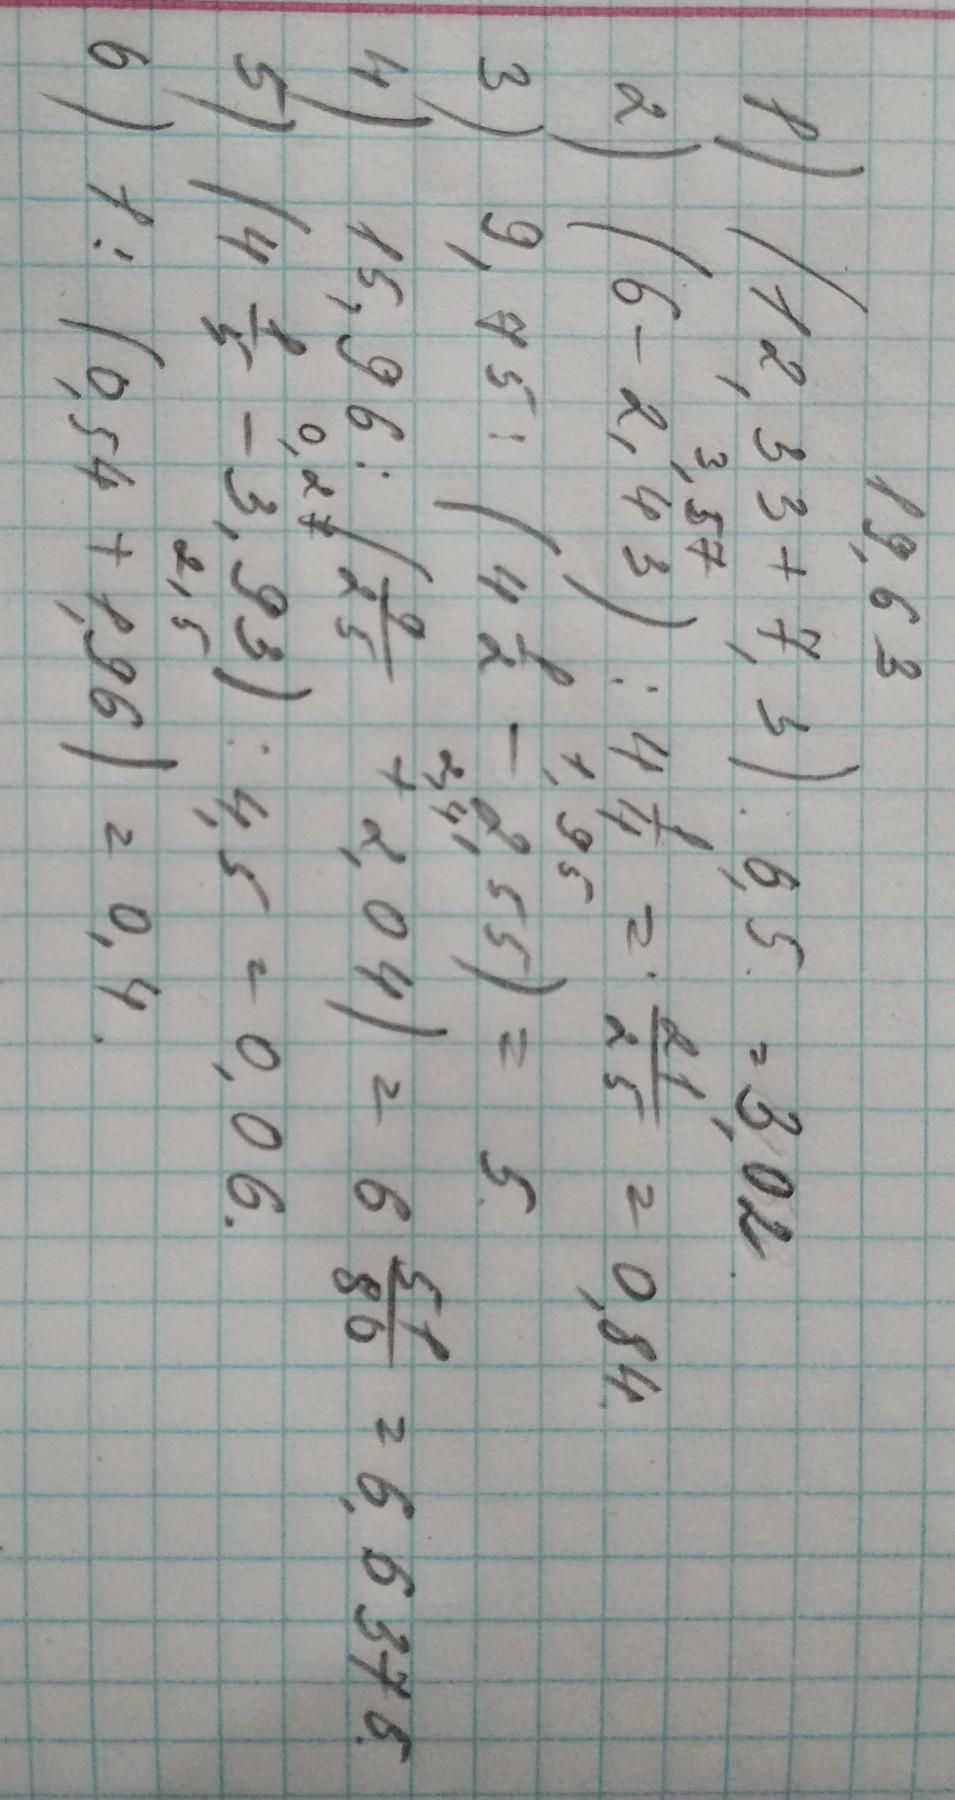 19,63
1) (12,33+7,3) : 6,5. = 3,02.
3,57
2) (6-2,43) : 4 1/4 = 21/25 = 0,84.
1,95
3) 9,75 : (4 1/2 - 2,55) = 5.
2,4
4) 15,96 : (9/25 + 2,04) = 6 51/80 = 6,6375.
0,27
5) (4 1/5 - 3,93) : 4,5 = 0,06.
2,5
6) 1 : (0,54 + 1,96) = 0,4.